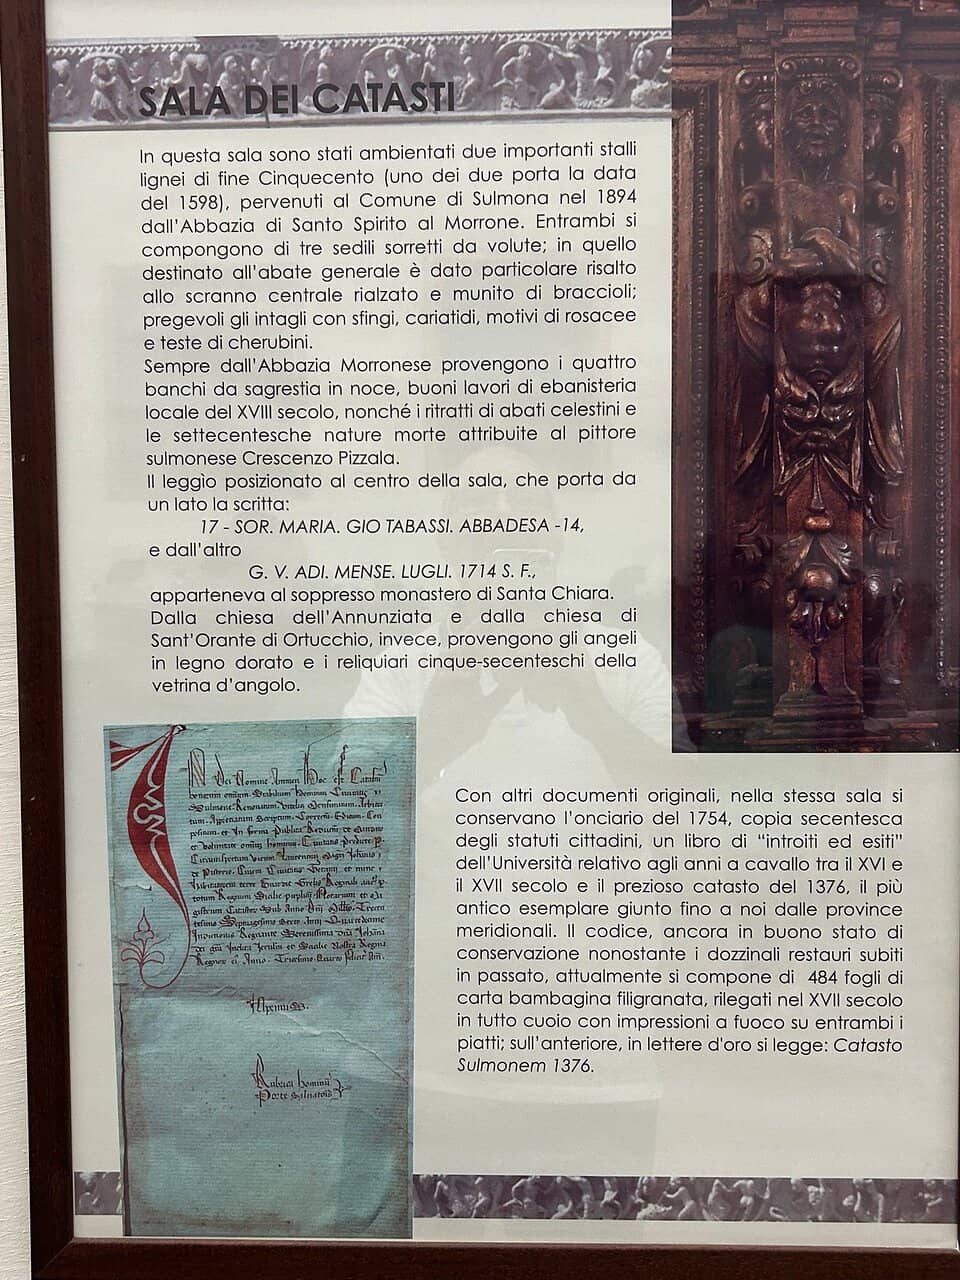 SALA DEI CATASTI
In questa sala sono stati ambientati due importanti stalli
lignei di fine Cinquecento (uno dei due porta la data
del 1598), pervenuti al Comune di Sulmona nel 1894
dall'Abbazia di Santo Spirito al Morrone. Entrambi si
compongono di tre sedili sorretti da volute; in quello
destinato all'abate generale è dato particolare risalto
allo scranno centrale rialzato e munito di braccioli;
pregevoli gli intagli con sfingi, cariatidi, motivi di rosacee
e teste di cherubini.
Sempre dall'Abbazia Morronese provengono i quattro
banchi da sagrestia in noce, buoni lavori di ebanisteria
locale del XVIII secolo, nonché i ritratti di abati celestini e
le settecentesche nature morte attribuite al pittore
sulmonese Crescenzo Pizzala.
Il leggìo posizionato al centro della sala, che porta da
un lato la scritta:
17 - SOR. MARIA. GIO TABASSI. ABBADESA -14,
e dall'altro
G. V. ADI. MENSE. LUGLI. 1714 S. F.,
apparteneva al soppresso monastero di Santa Chiara.
Dalla chiesa dell'Annunziata e dalla chiesa di
Sant'Orante di Ortucchio, invece, provengono gli angeli
in legno dorato e i reliquiari cinque-secenteschi della
vetrina d'angolo.
Con altri documenti originali, nella stessa sala si
conservano l'onciario del 1754, copia secentesca
degli statuti cittadini, un libro di "introiti ed esiti"
dell'Università relativo agli anni a cavallo tra il XVI e
il XVII secolo e il prezioso catasto del 1376, il più
antico esemplare giunto fino a noi dalle province
meridionali. Il codice, ancora in buono stato di
conservazione nonostante i dozzinali restauri subiti
in passato, attualmente si compone di 484 fogli di
carta bambagina filigranata, rilegati nel XVII secolo
in tutto cuoio con impressioni a fuoco su entrambi i
piatti; sull'anteriore, in lettere d'oro si legge: Catasto
Sulmonem 1376.